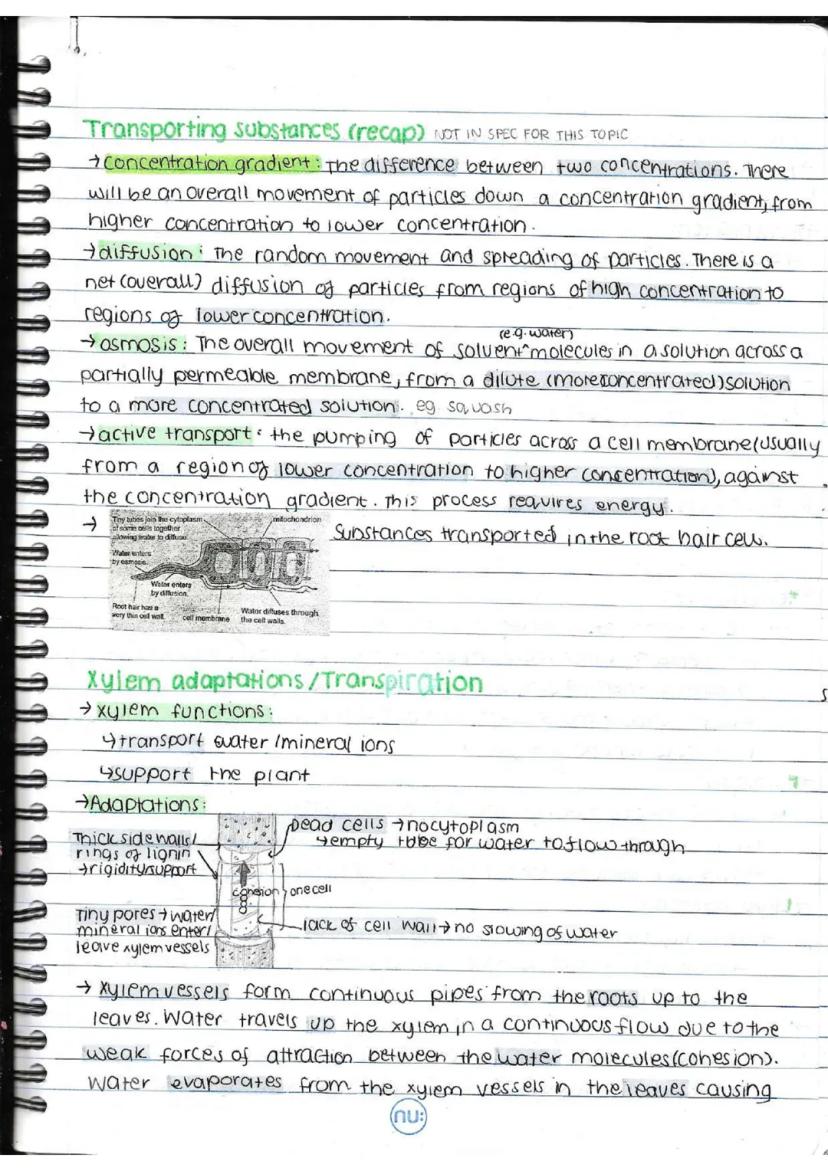 Transporting substances (recap) NOT IN SPEC FOR THIS TOPIC
→ concentration gradient: The difference between two concentrations. There
will be an overall movement of particles down a concentration gradient, from
higher concentration to lower concentration.
→ diffusion: The random movement and spreading of particles. There is a
net (overall) diffusion of particles from regions of high concentration to
regions of lower concentration.
(e.g. water)
→ osmosis: The overall movement of solvent ^ molecules in a solution across a
partially permeable membrane, from a dilute (more concentrated) solution
to a more concentrated solution. eg squash
→ active transport: the pumping of particles across a cell membrane (usually
from a region of lower concentration to higher concentration), against
the concentration gradient. This process requires energy.
→ Substances transported in the root hair cell.
Tiny tubes join the cytoplasm
of some cells together
allowing water to diffuse.
mitochondrion
Water enters
by osmosis.
Water enters
by diffusion.
Root hair has a
very thin cell wall.
cell membrane
Water diffuses through
the cell walls.
Xylem adaptations/Transpiration
→ xylem functions:
↳ transport water/mineral ions
↳ support the plant
→ Adaptations:
Thick side walls/
rings of lignin
→ rigidity/support
Dead cells → no cytoplasm
↳ empty tube for water to flow through
cohesion
one cell
Tiny pores → water/
mineral ions enter/
leave xylem vessels
lack of cell wall → no slowing of water
→ Xylem vessels form continuous pipes from the roots up to the
leaves. Water travels up the xylem in a continuous flow due to the
weak forces of attraction between the water molecules (cohesion).
Water evaporates from the xylem vessels in the leaves causing
nu: